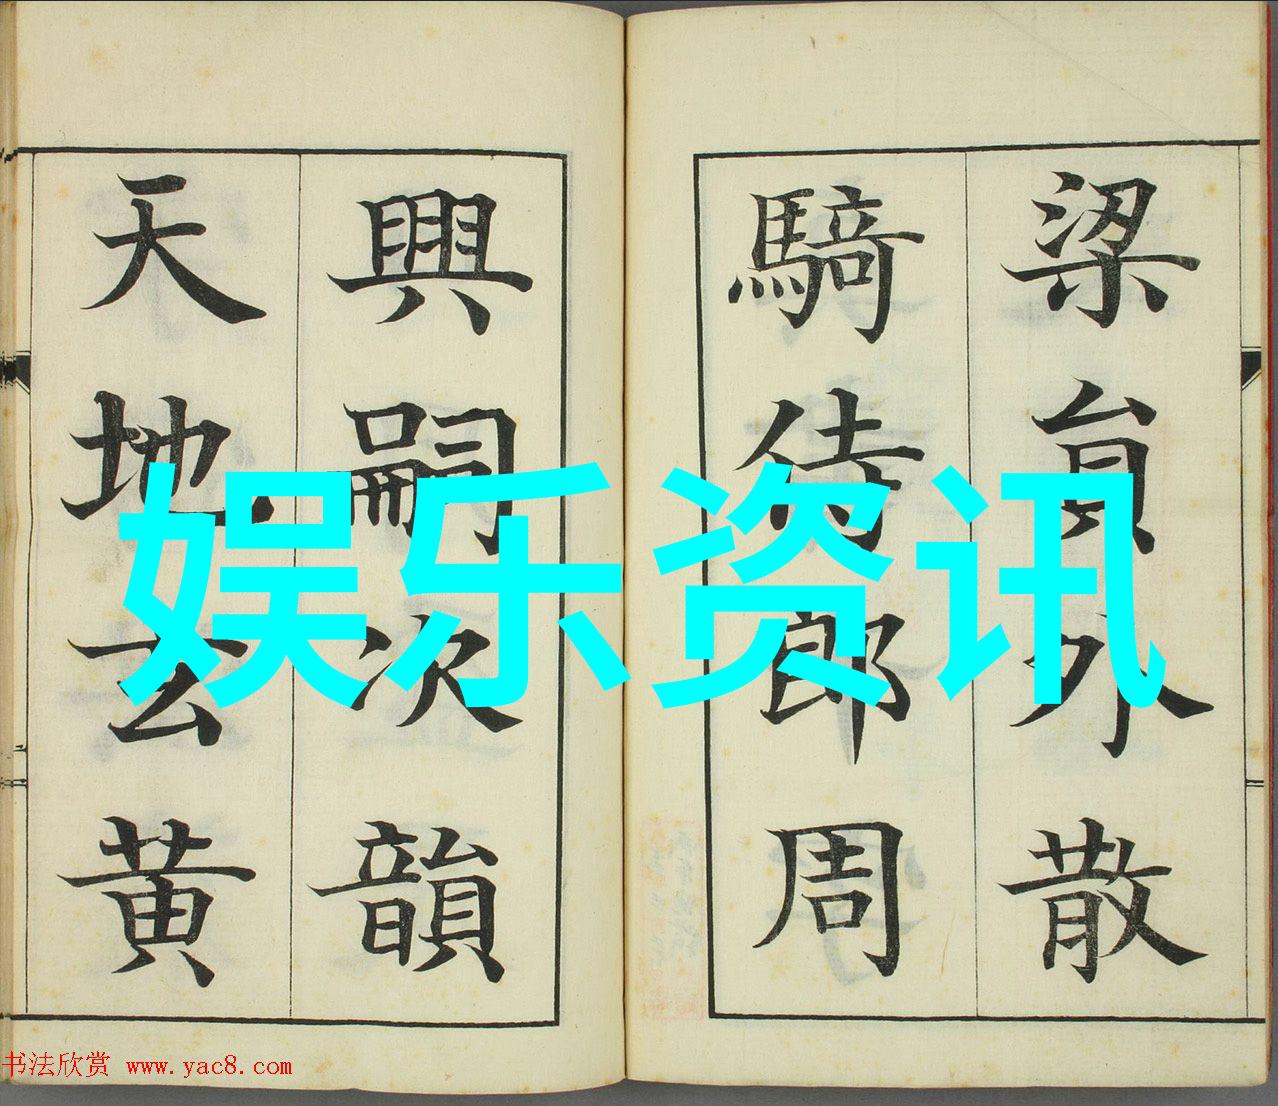 梁員外散
騎侍郎周
興嗣次韻
天地玄黃
娱乐资讯
书法欣赏 www.yac8.com